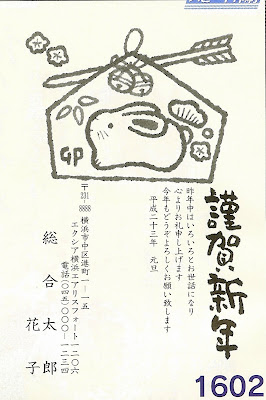 謹賀新年
昨年中はいろいろとお世話になり
心よりお礼申し上げます
今年もどうぞよろしくお願い致します
平成二十三年 元旦
GP
〒231-8888
横浜市中区港町一-一五
エクシア横浜エアリスフォート一二〇六
電話(〇四五)〇〇〇-一二三四
総合太郎
花子
1602